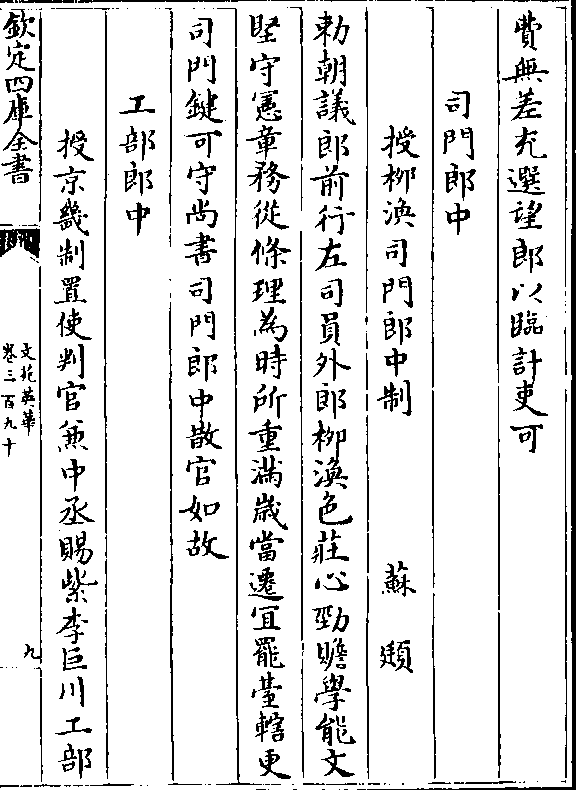 費無差充選望郎以臨計吏可
司門郎中
授栁渙司門郎中制 蘇頲
勅朝議郎前行左司員外郎栁渙色莊心勁贍學能文
堅守憲章務從條理為時所重滿嵗當遷宜罷臺轄更
司門鍵可守尚書司門郎中散官如故
工部郎中
授京畿制置使判官兼中丞賜紫李巨川工部
欽定四庫全書
文苑英華
卷三百九十
九